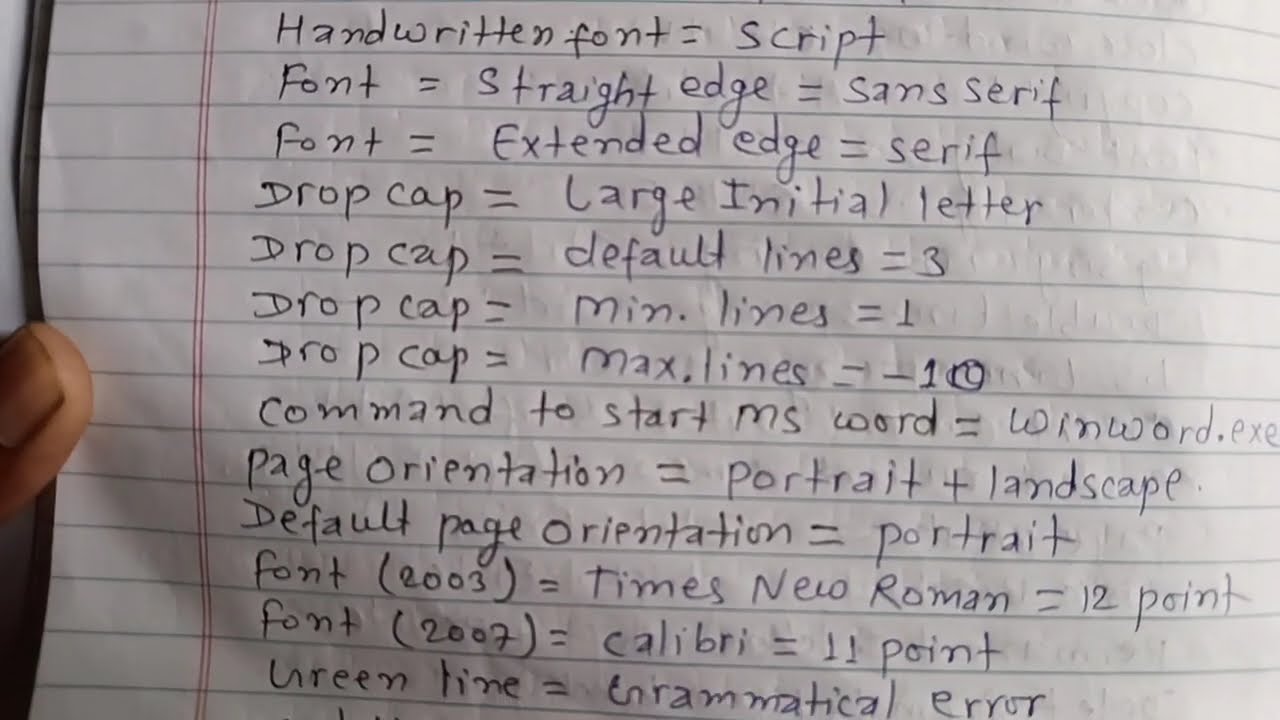 Handwritten font = Script
Font = Straight edge = Sans Serif
Font = Extended edge = serif
Drop cap = Large Initial letter
Drop cap = default lines = 3
Drop cap = Min. lines = 1
Drop cap = Max. lines = -10
Command to start MS Word = Winword.exe
Page Orientation = Portrait + landscape.
Default page Orientation = portrait
Font (2003) = Times New Roman = 12 point
Font (2007) = Calibri = 11 point
Green line = Grammatical error